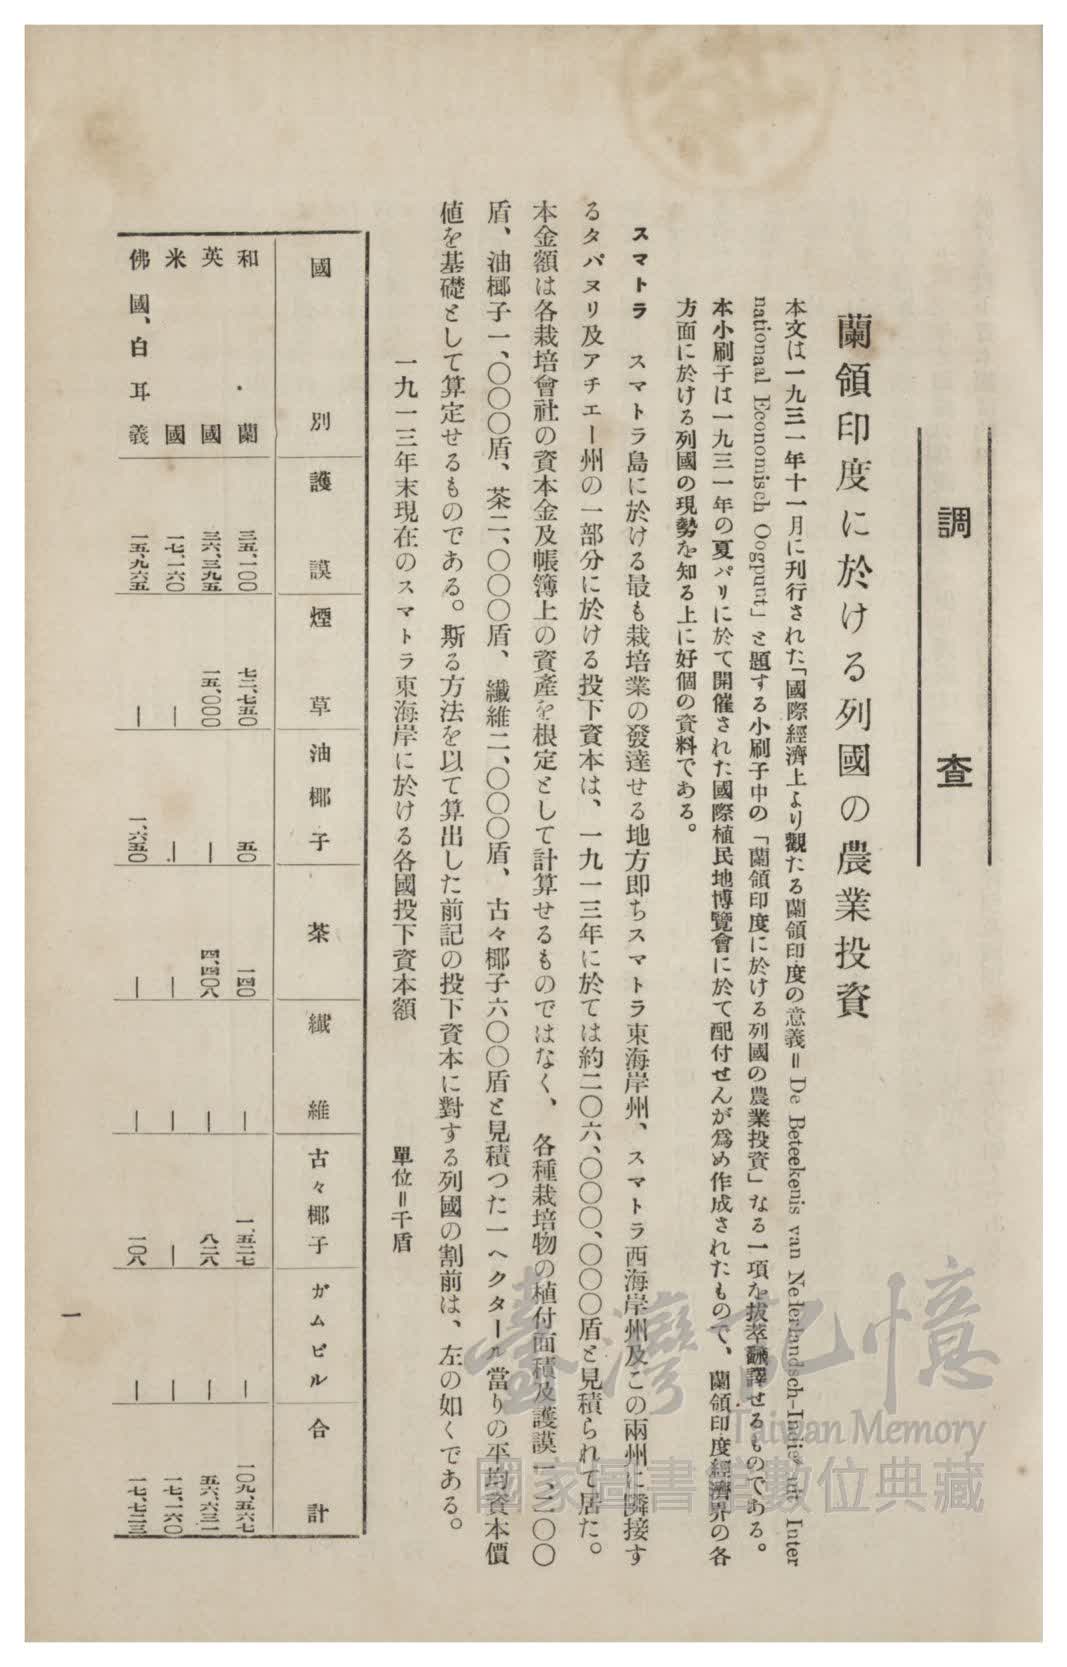 調查
蘭領印度に於ける列國の農業投資
本文は一九三一年十一月に刊行された「國際經濟上より觀たる蘭領印度の意義＝De Beteekenis van Nederlandsch-Indie uit Inter
nationaal Economisch Oogpunt」と題する小刷子中の「蘭領印度に於ける列國の農業投資」なる一項を拔萃飜譯せるものである。
本小刷子は一九三一年の夏パリに於て開催された國際植民地博覽會に於て配付せんが爲め作成されたもので、蘭領印度經濟界の各
方面に於ける列國の現勢を知る上に好個の資料である。
スマトラ　スマトラ島に於ける最も栽培業の發達せる地方即ちスマトラ東海岸州、スマトラ西海岸州及この兩州に隣接す
るタパヌリ及アチエー州の一部分に於ける投下資本は、一九一三年に於ては約二〇六、〇〇〇、〇〇〇盾と見積られて居た。
本金額は各栽培會社の資本金及帳簿上の資產を根定として計算せるものではなく、各種栽培物の植付面積及護謨一、三〇〇
盾、油椰子一、〇〇〇盾、茶二、〇〇〇盾、纖維二、〇〇〇盾、古々椰子六〇〇盾と見積つた一ヘクタール當りの平均資本價
値を基礎として算定せるものである。斯る方法を以て算出した前記の投下資本に對する列國の割前は、左の如くである。
一九一三年末現在のスマトラ東海岸に於ける各國投下資本額　單位＝千盾
國別　護謨　煙草　油椰子　茶　纖維　古々椰子　ガムビル　合計
和蘭　三五、一〇〇　七二、七五〇　五〇　一四〇　—　一、五二七　—　一〇九、五六七
英國　三六、三九五　一五、〇〇〇　—　四、四〇八　—　八二八　—　五六、六三一
米國　一七、一六〇　—　—　—　—　—　—　一七、一六〇
佛國、白耳義　一五、九六五　—　一、六五〇　—　—　一〇八　—　一七、七二三
一
臺灣記憶
Taiwan Memory
國家圖書館數位典藏